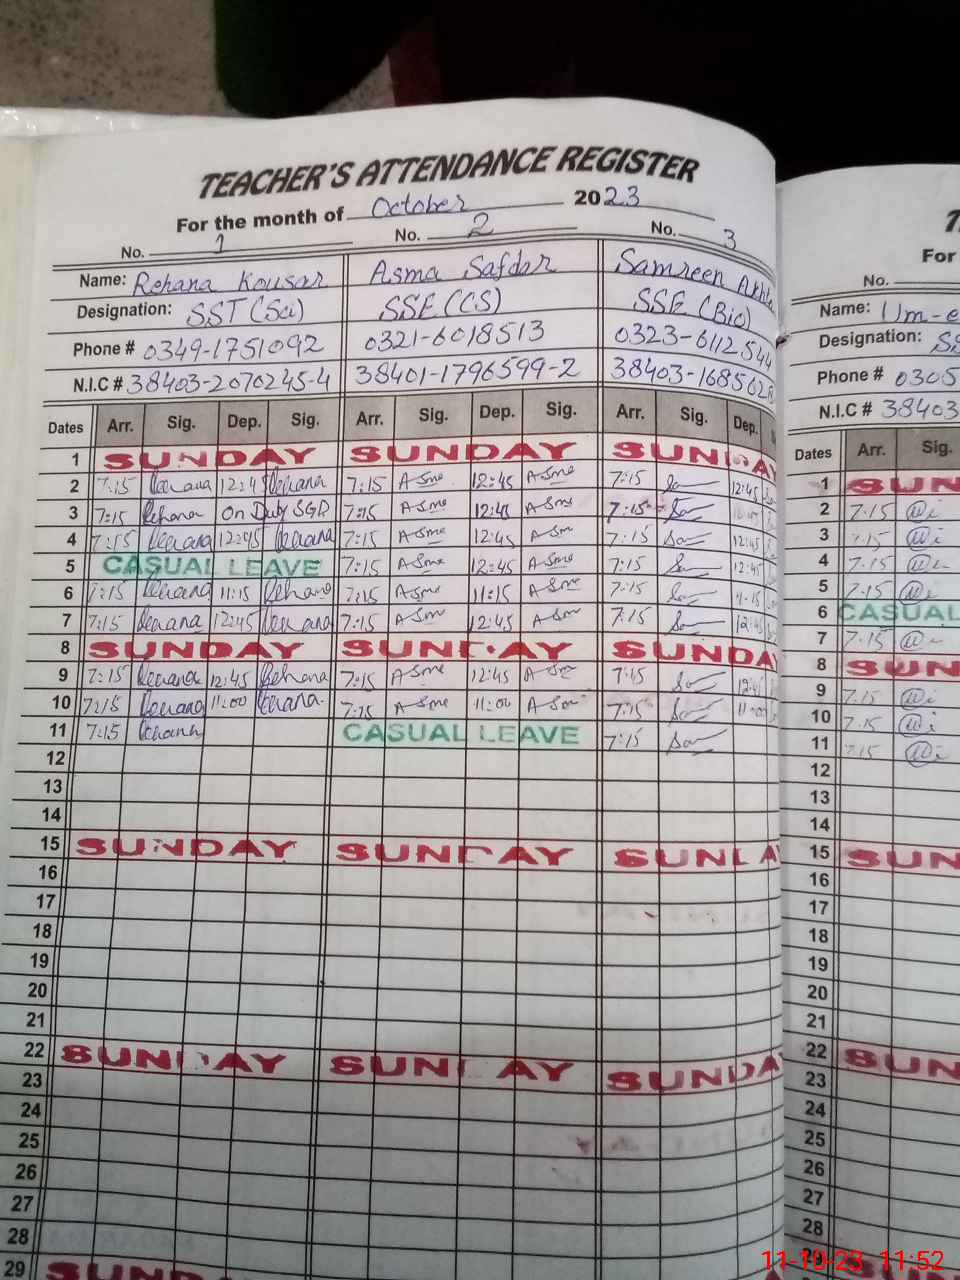 TEACHER'S ATTENDANCE REGISTER
For the month of October 2023
No. 1 No. 2 No. 3
Name: Rehana Kousar Asma Safdar Samreen
Designation: SST (Sci) SSE (CS) SSE (Bio)
Phone # 0349-1751092 0321-6018513 0323-6112544
N.I.C # 38403-2070245-4 38401-1796599-2 38403-1685628
Dates Arr. Sig. Dep. Sig. Arr. Sig. Dep. Sig. Arr. Sig. Dep.
1 SUNDAY SUNDAY SUNDAY
2 7:15 Rehana 12:45 Rehana 7:15 Asma 12:45 Asma 7:15 12:45
3 7:15 Rehana On Duty SGD 7:15 Asma 12:45 Asma 7:15
4 7:15 Rehana 12:45 Rehana 7:15 Asma 12:45 Asma 7:15 12:45
5 CASUAL LEAVE 7:15 Asma 12:45 Asma 7:15 12:45
6 7:15 Rehana 11:15 Rehana 7:15 Asma 11:15 Asma 7:15
7 7:15 Rehana 12:45 Rehana 7:15 Asma 12:45 Asma 7:15 12:45
8 SUNDAY SUNDAY SUNDA
9 7:15 Rehana 12:45 Rehana 7:15 Asma 12:45 Asma 7:15 12:45
10 7:15 Rehana 11:00 Rehana 7:15 Asma 11:00 Asma 7:15 11:00
11 7:15 Rehana CASUAL LEAVE 7:15
12
13
14
15 SUNDAY SUNDAY SUNDA
16
17
18
19
20
21
22 SUNDAY SUNDAY SUNDA
23
24
25
26
27
28
29 SUNDAY
For
No.
Name: Um-e
Designation: SS
Phone # 0305
N.I.C # 38403
Dates Arr. Sig.
1 SUN
2 7:15
3 7:15
4 7:15
5 7:15
6 CASUAL
7 7:15
8 SUN
9 7:15
10 7:15
11 7:15
12
13
14
15 SUN
16
17
18
19
20
21
22 SUN
23
24
25
26
27
28
11-10-23 11:52